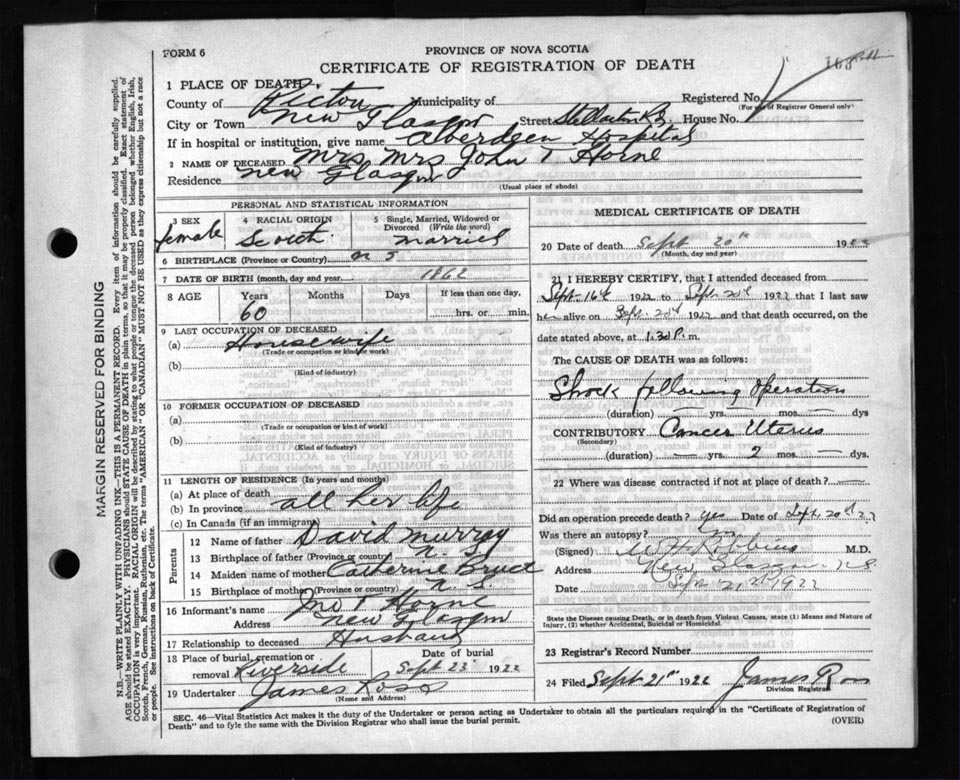 FORM 6
PROVINCE OF NOVA SCOTIA
CERTIFICATE OF REGISTRATION OF DEATH
1 PLACE OF DEATH.
County of Pictou Municipality of Registered No.
(For use of Registrar General only)
City or Town New Glasgow Street Stellarton Rd. House No.
If in hospital or institution, give name Aberdeen Hospital
2 NAME OF DECEASED Mrs Mrs John T Horne
Residence New Glasgow
(Usual place of abode)
PERSONAL AND STATISTICAL INFORMATION
3 SEX
female
4 RACIAL ORIGIN
Scotch
5 Single, Married, Widowed or
Divorced (Write the word)
Married
6 BIRTHPLACE (Province or Country) N S
7 DATE OF BIRTH (month, day and year) 1862
8 AGE Years Months Days If less than one day,
60 hrs. or min.
9 LAST OCCUPATION OF DECEASED
(a) Housewife
(Trade or occupation or kind of work)
(b)
(Kind of industry)
10 FORMER OCCUPATION OF DECEASED
(a)
(Trade or occupation or kind of work)
(b)
(Kind of industry)
11 LENGTH OF RESIDENCE (In years and months)
(a) At place of death
(b) In province all her life
(c) In Canada (if an immigrant)
Parents
12 Name of father David Murray
13 Birthplace of father (Province or country) N. S
14 Maiden name of mother Catherine Bruce
15 Birthplace of mother (Province or country) N. S.
16 Informant's name Jno T Horne
Address New Glasgow
17 Relationship to deceased Husband
18 Place of burial, cremation or
removal Riverside
Date of burial
Sept 23 1922
19 Undertaker James Ross
(Name and Address)
MEDICAL CERTIFICATE OF DEATH
20 Date of death Sept 20th 1922
(Month, day and year)
21 I HEREBY CERTIFY, that I attended deceased from
Sept. 16th 1922 to Sept. 20th 1922 that I last saw
her alive on Sept. 20th 1922 and that death occurred, on the
date stated above, at 1.30 P. m.
The CAUSE OF DEATH was as follows:
Shock following Operation
(duration) — yrs. — mos. — dys
CONTRIBUTORY Cancer Uterus
(Secondary)
(duration) — yrs. 2 mos. — dys.
22 Where was disease contracted if not at place of death? —
Did an operation precede death? yes Date of Sept. 20th 22
Was there an autopsy? no
(Signed) M.D.
Address New Glasgow N S
Date Sept. 21st 1922
State the Disease causing Death, or in death from Violent Causes, state (1) Means and Nature of
Injury, (2) whether Accidental, Suicidal or Homicidal.
23 Registrar's Record Number
24 Filed Sept 21st 1922 James Ross
Division Registrar
SEC. 46—Vital Statistics Act makes it the duty of the Undertaker or person acting as Undertaker to obtain all the particulars required in the "Certificate of Registration of
Death" and to fyle the same with the Division Registrar who shall issue the burial permit.
(OVER)
MARGIN RESERVED FOR BINDING
N.B.—WRITE PLAINLY WITH UNFADING INK—THIS IS A PERMANENT RECORD. Every item of information should be carefully supplied.
AGE should be stated EXACTLY. PHYSICIANS should STATE CAUSE OF DEATH in plain terms, so that it may be properly classified. Exact statement of
OCCUPATION is very important. RACIAL ORIGIN will be described by stating to what people or tongue the deceased person belonged whether English, Irish,
Scotch, French, German, Russian, Ruthenian, etc. The terms "AMERICAN" OR "CANADIAN" MUST NOT BE USED as they express citizenship but not a race
or people. See instructions on back of Certificate.